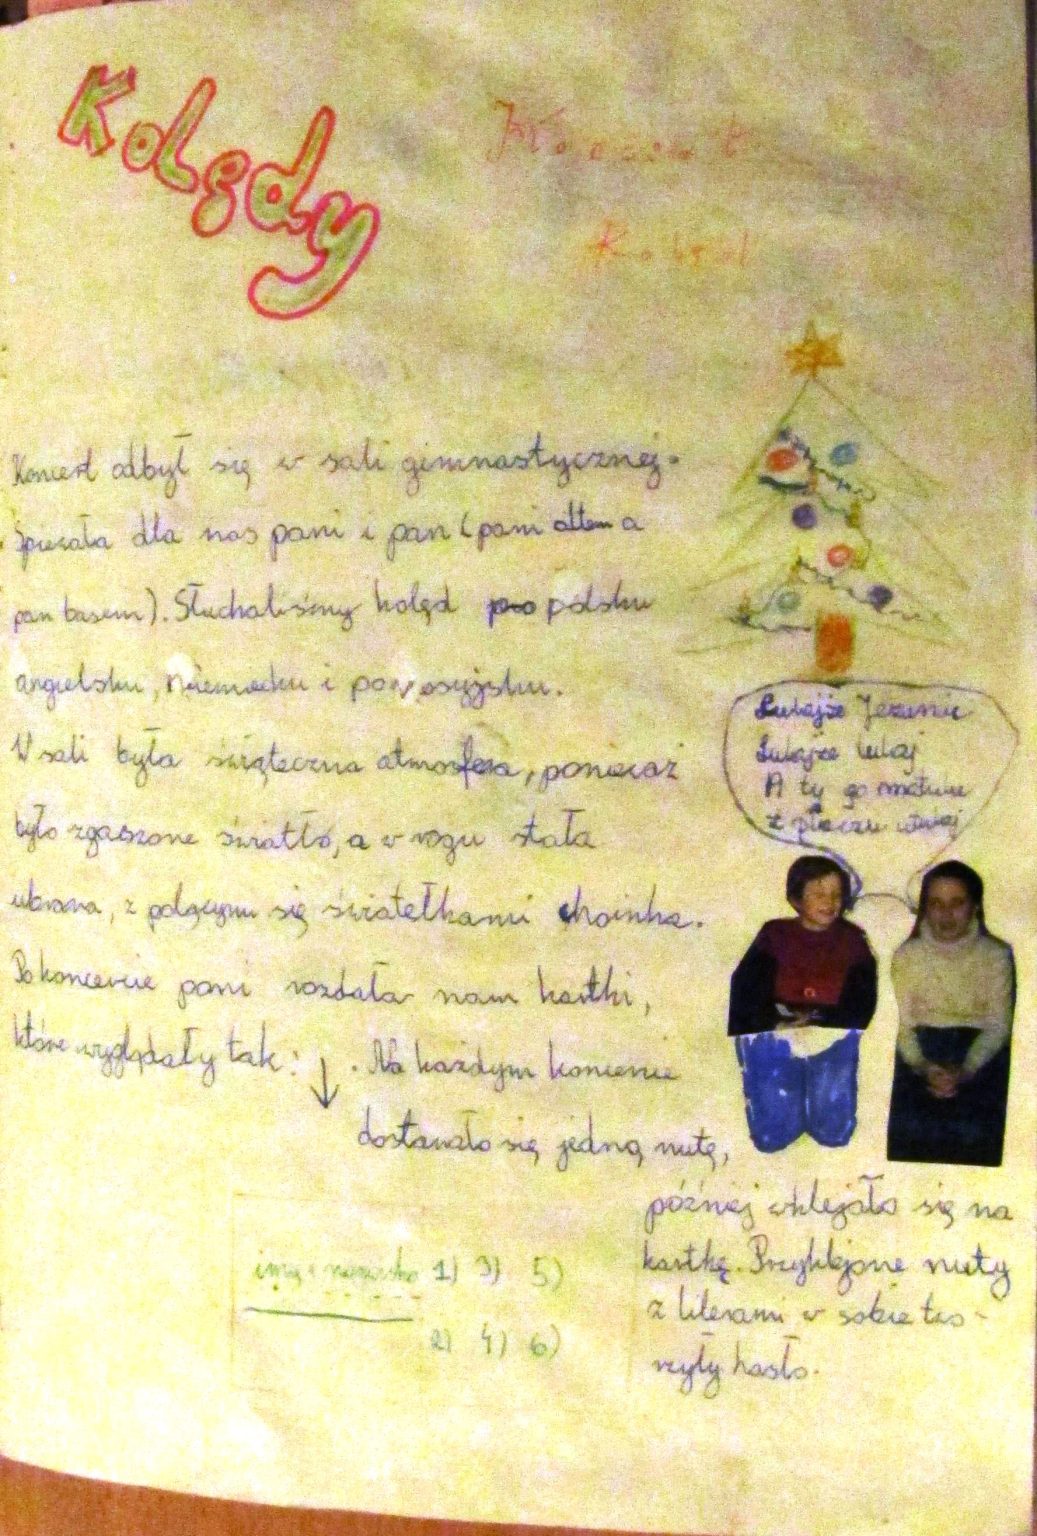 Kolędy
Koncert odbył się w sali gimnastycznej.
Śpiewała dla nas pani i pan (pani altem a
pan basem). Słuchaliśmy kolęd po polsku
angielsku, niemiecku i po rosyjsku.
W sali była świąteczna atmosfera, ponieważ
było zgaszone światło, a w rogu stała
ubrana, z palącymi się światełkami choinka.
Po koncercie pani rozdała nam kartki,
które wyglądały tak: ↓ . Na każdym koncercie
dostawało się jedną nutę,
później wklejało się na
kartkę. Przyklejone nuty
z literami w sobie two-
rzyły hasło.
imię i nazwisko 1) 3) 5)
2) 4) 6)
Lulajże Jezuniu
Lulajże lulaj
A ty go matulu
z płaczu utulaj